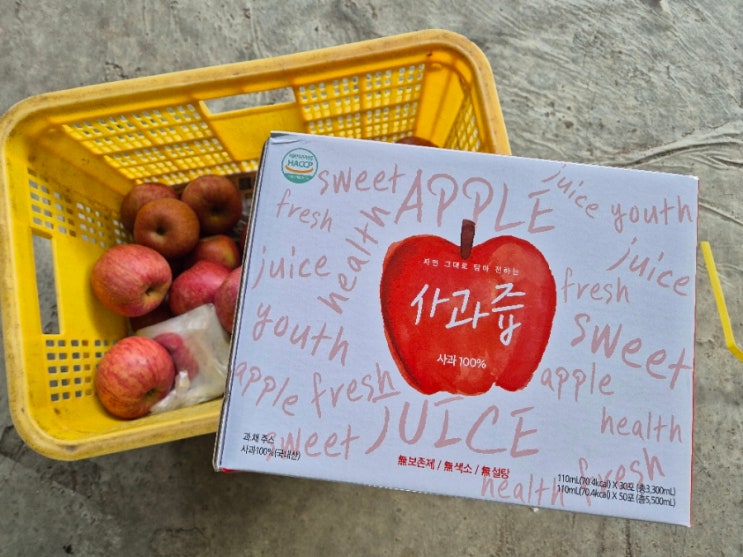 HACCP
sweet APPLE juice youth
fresh health juice
juice
자연 그대로 담아 전하는
사과즙
사과 100%
fresh
youth
sweet
apple fresh
apple
JUICE
health
sweet
health fresh
과.채 주스
사과100%(국내산)
無보존제 / 無색소 / 無설탕
110mL(70.4kcal) X 30포 (총3,300mL)
110mL(70.4kcal) X 50포 (총5,500mL)